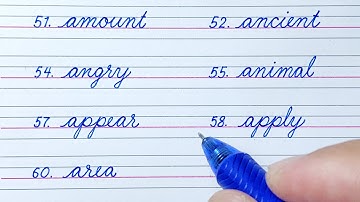 51. amount 52. ancient
54. angry 55. animal
57. appear 58. apply
60. area